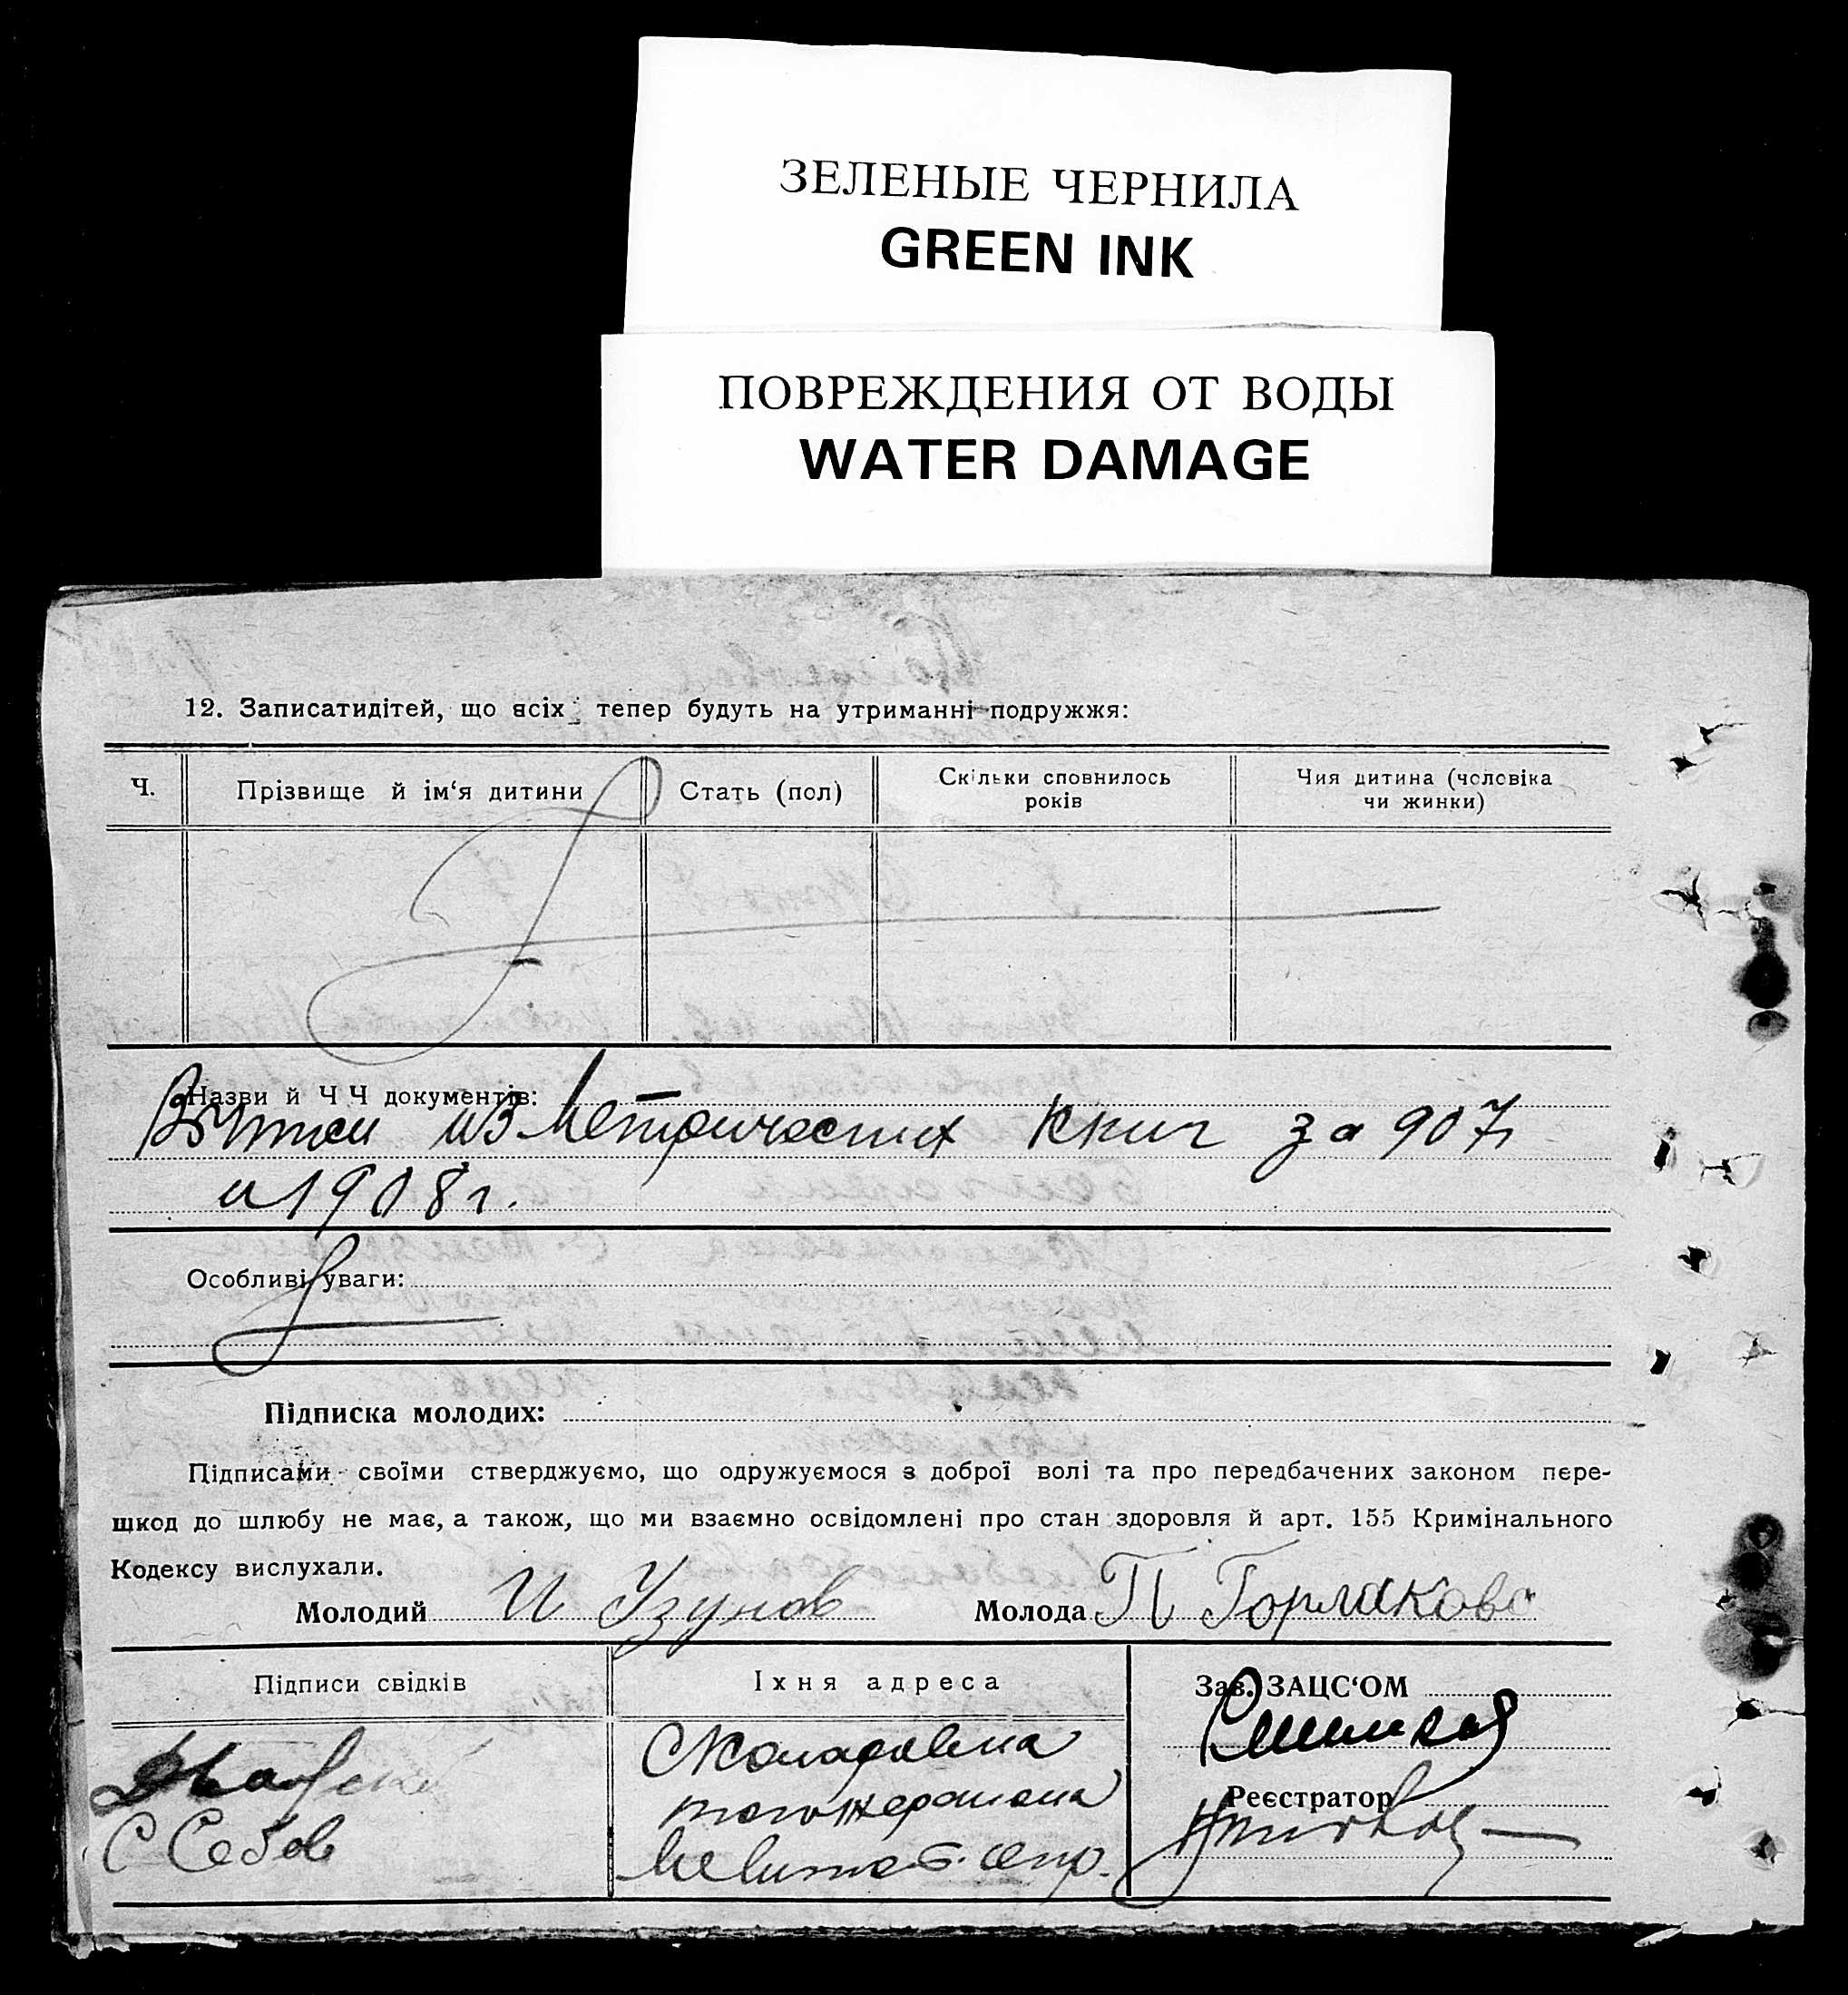 ЗЕЛЕНЫЕ ЧЕРНИЛА
GREEN INK
ПОВРЕЖДЕНИЯ ОТ ВОДЫ
WATER DAMAGE
12. Записатидітей, що всіх тепер будуть на утриманні подружжя:
Ч.
Прізвище й ім‘я дитини
Стать (пол)
Скільки сповнилось
років
Чия дитина (чоловіка
чи жинки)
Назви й Ч Ч документів:
из Метрических Книг за 907г
и 1908г.
Особливі уваги:
Підписка молодих:
Підписами своїми стверджуємо, що одружуємося з доброї волі та про передбачених законом пере-
шкод до шлюбу не має, а також, що ми взаємно освідомлені про стан здоровля й арт. 155 Кримінального
Кодексу вислухали.
Молодий И Узунов Молода П Горлакова
Підписи свідків
Їхня адреса
Зав. ЗАЦС‘ОМ
Реєстратор
С